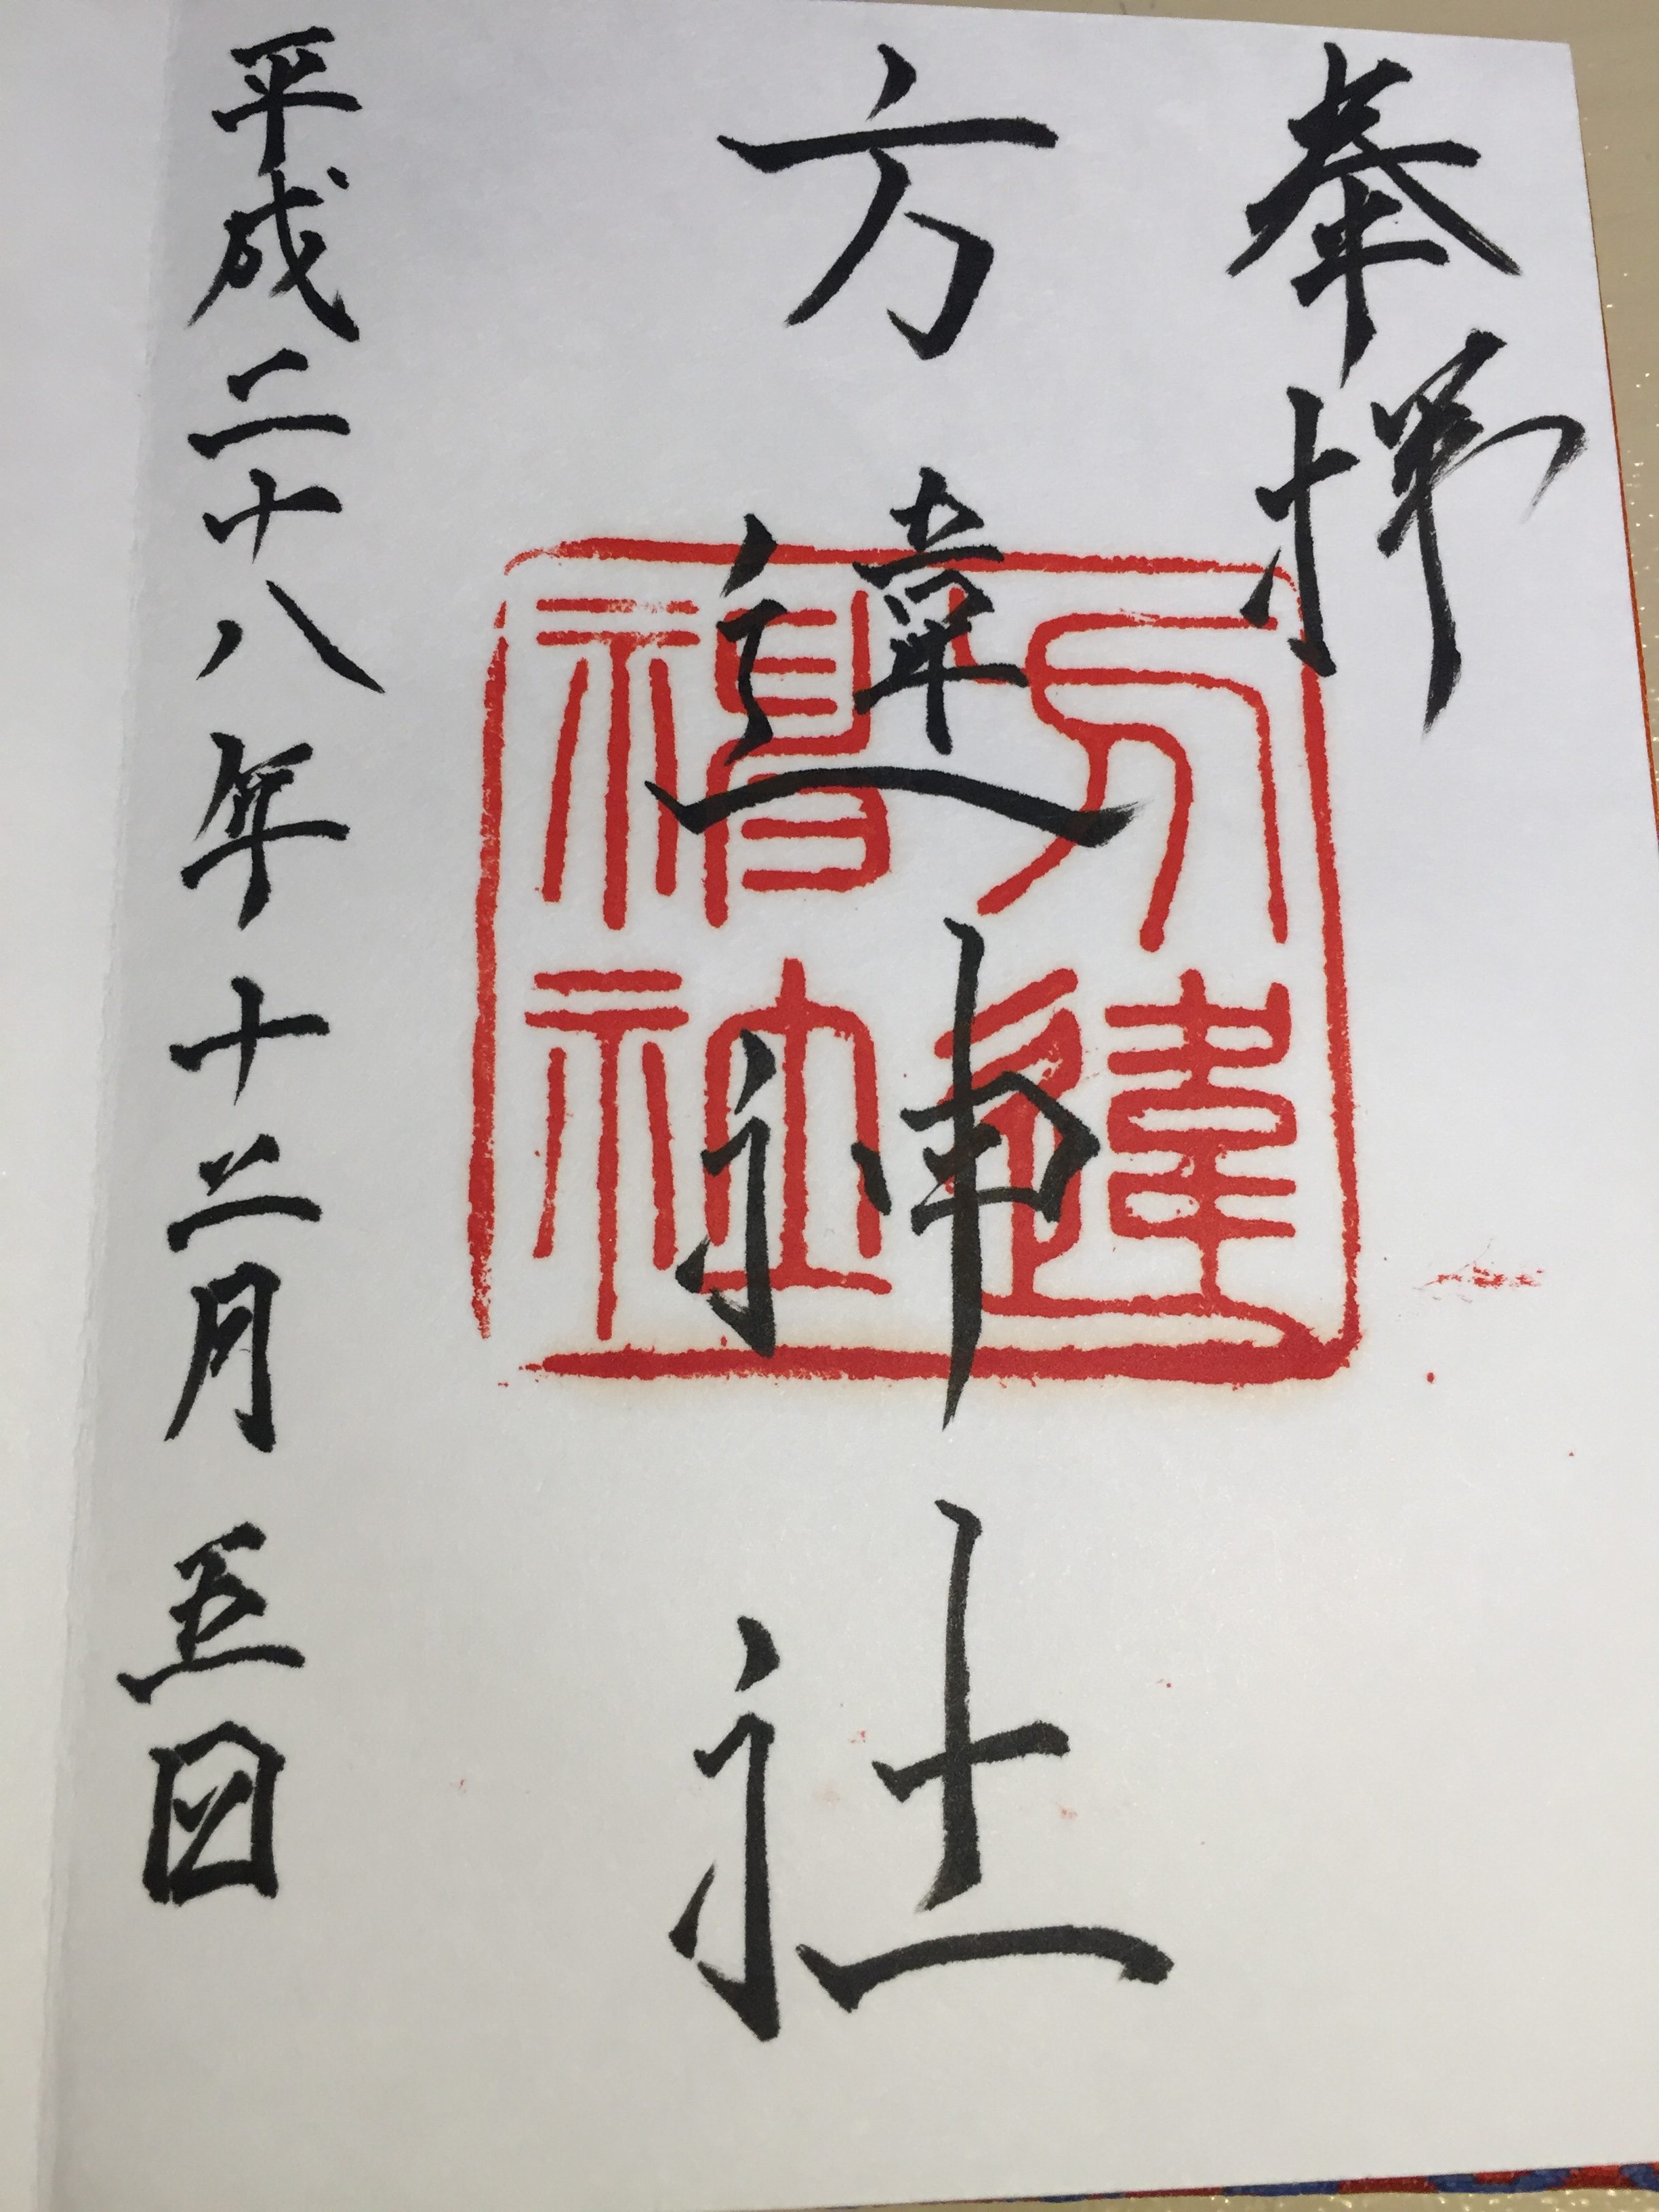 奉拝
方違神社
方違神社
平成二十八年十二月五日